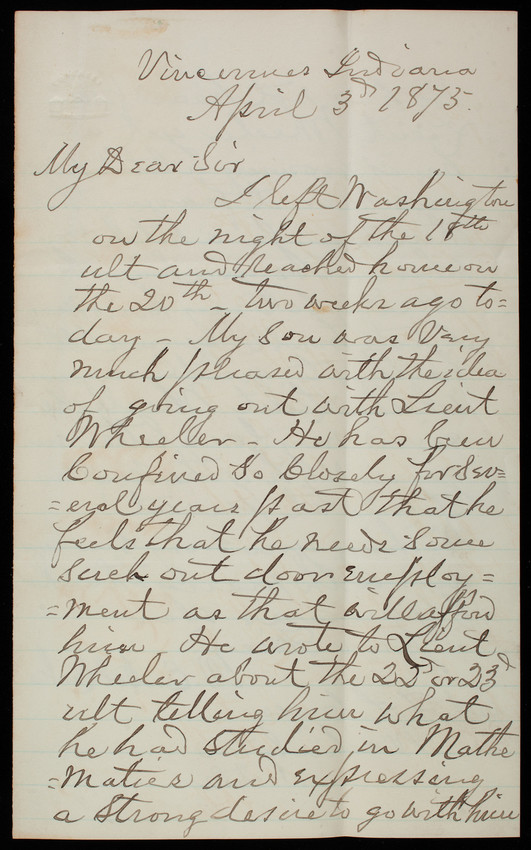 Vincennes Indiana
April 3d 1875.
My Dear Sir
I left Washington
on the night of the 18th
ult and reached home on
the 20th - two weeks ago to=
day - My Son was Very
much pleased with the idea
of going out with Lieut
Wheeler - He has been
Confined So Closely for Sev=
=eral years past that he
feels that he needs Some
Such out door employ=
=ment as that will afford
him. He wrote to Lieut
Wheeler about the 22d or 23d
ult telling him what
he had Studied in Mathe
=matics and expressing
a Strong desire to go with him